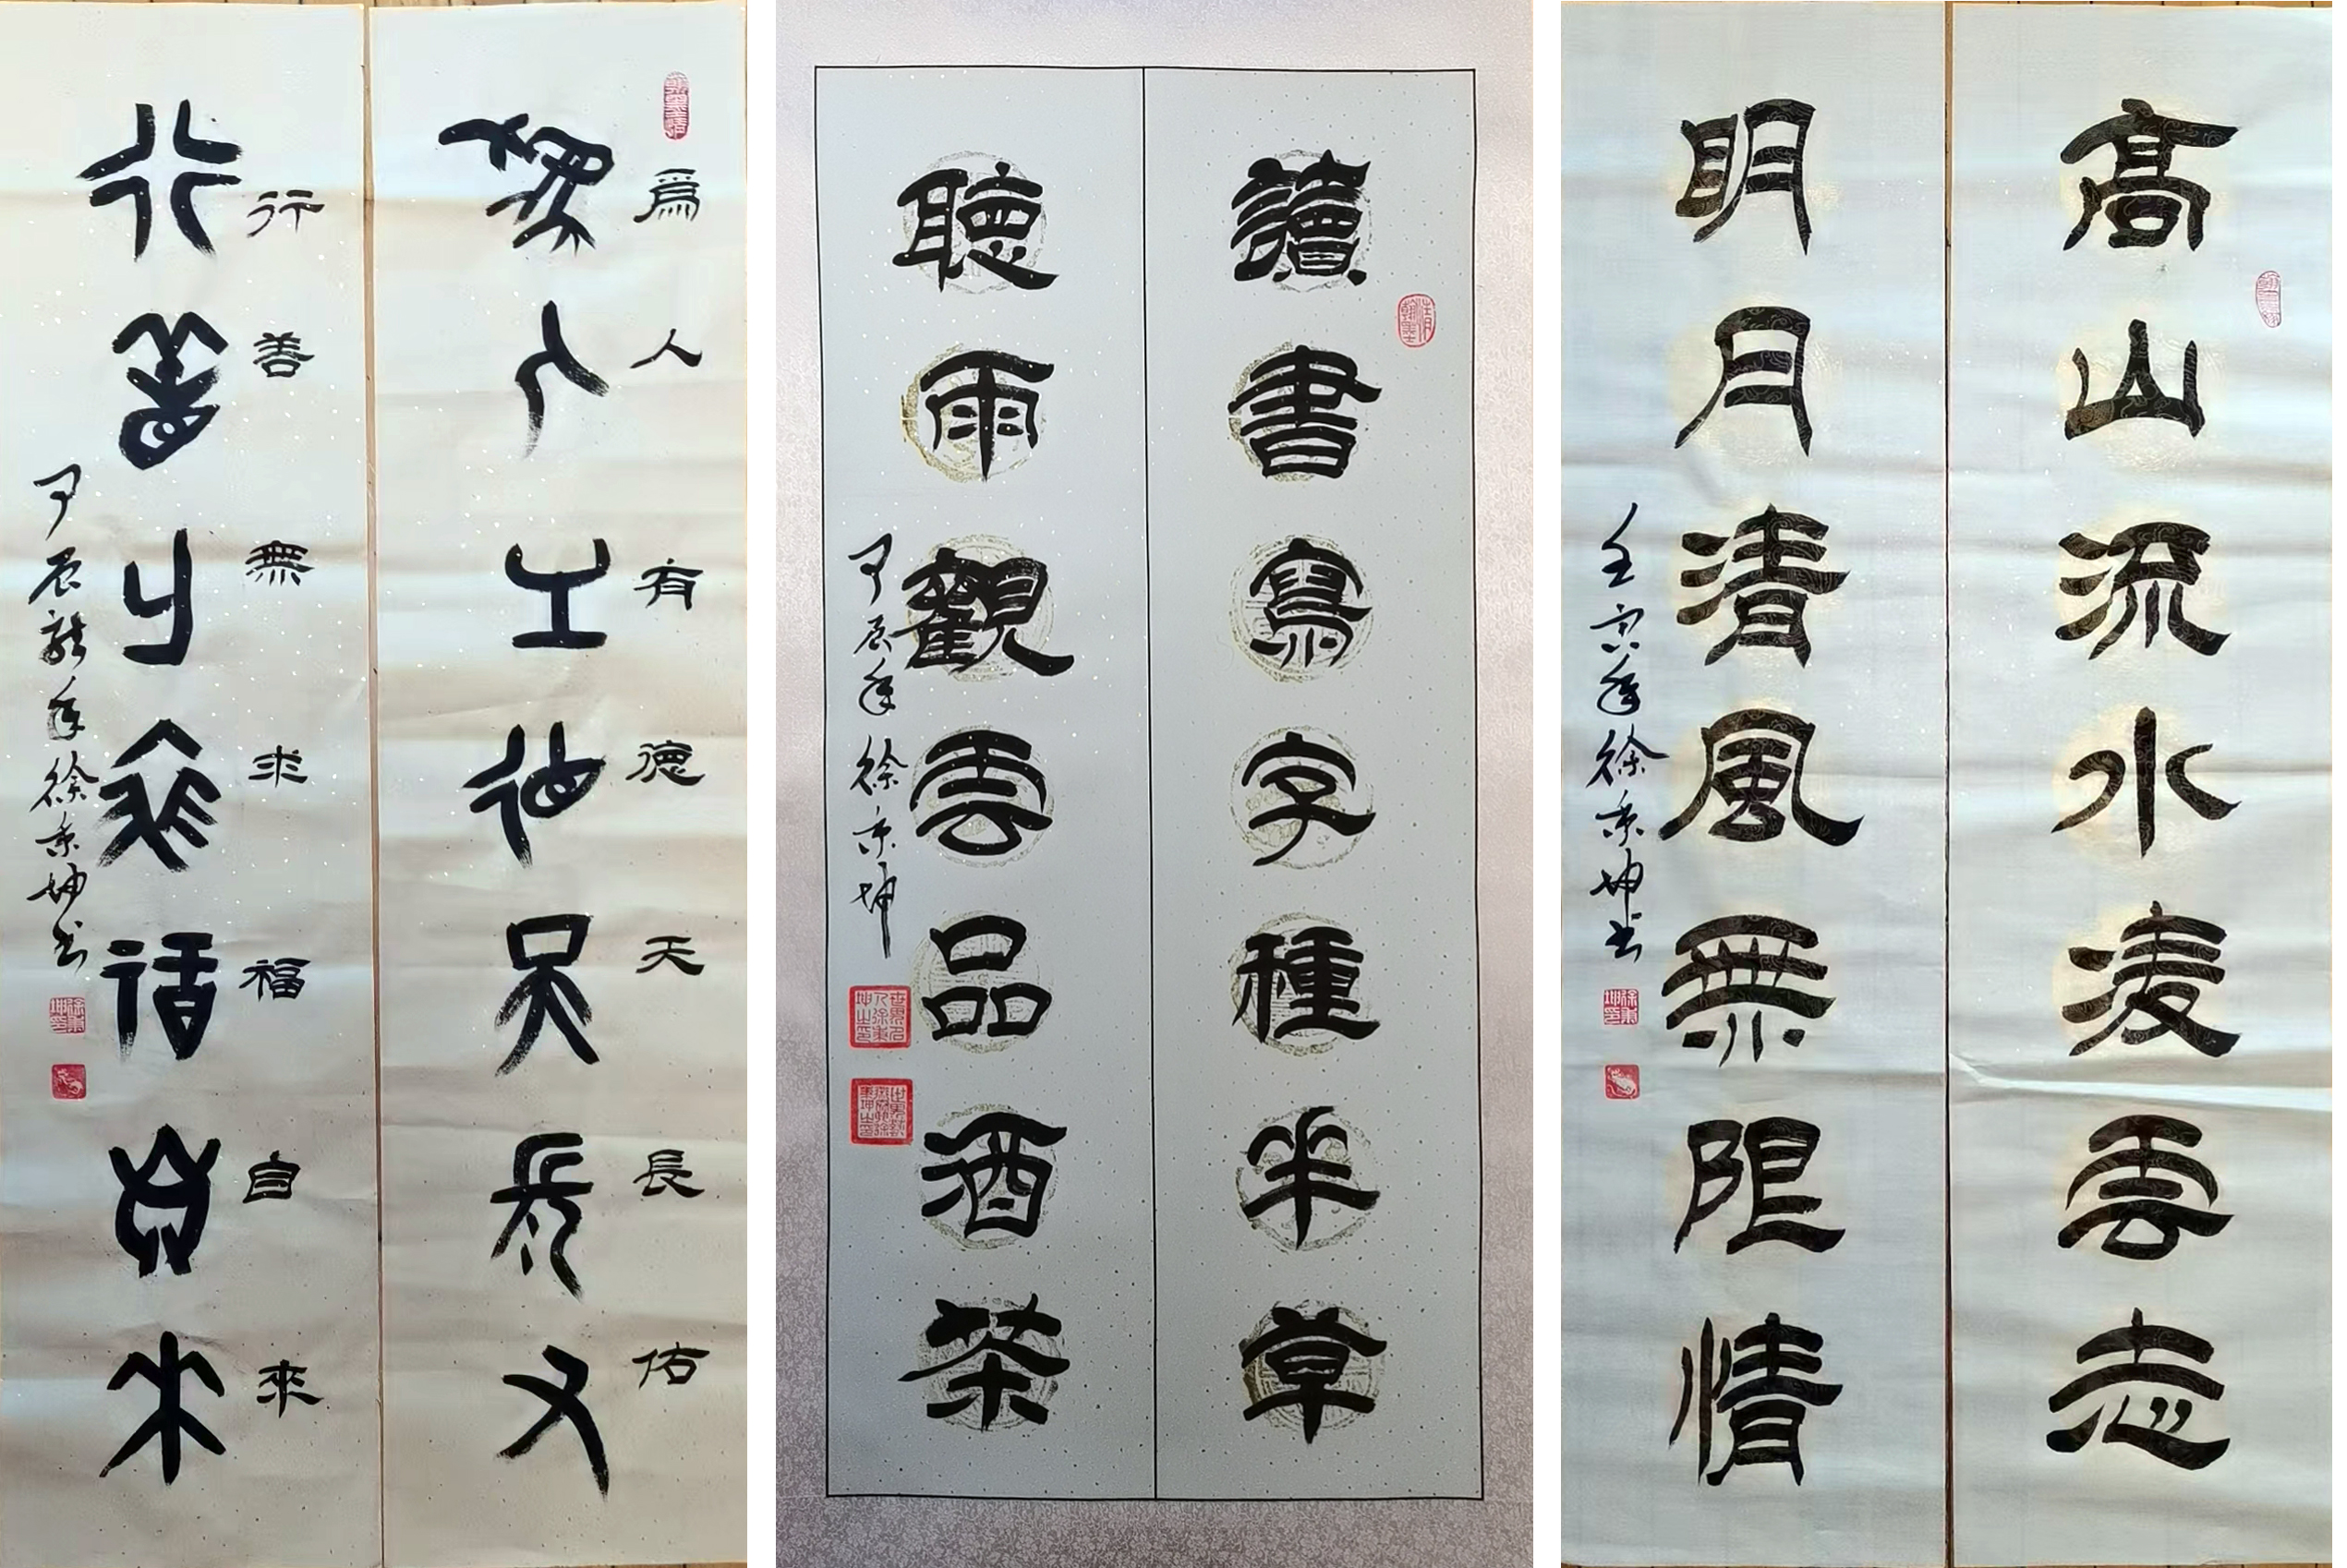 爲人有德天長佑
爲人有德天長佑
行善無求福自來
行善無求福自來
甲辰龍年徐秉坤书
徐秉坤印
讀書寫字種花草
聽雨觀雲品酒茶
甲辰年徐秉坤
高山流水凌雲志
明月清風無限情
壬寅年徐秉坤书
徐秉坤印